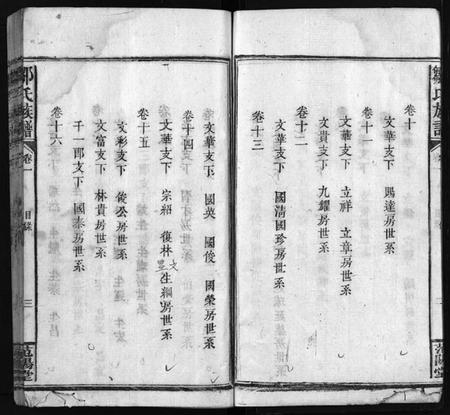 鄒氏族譜
卷十
文華支下　賜達房世系
卷十一
文華支下　立祥　立章房世系
文貴支下　九耀房世系
卷十二
文華支下　國清國珍房世系
卷十三
文華支下　國英　國俊　國榮房世系
卷十四
文華支下　宗紹　復林　生綱房世系
卷十五
文彩支下　俊公房世系
文富支下　林貴房世系
千一郎支下　國泰房世系
卷十六
鄒氏族譜
卷一
目錄
三
范陽堂
范陽堂